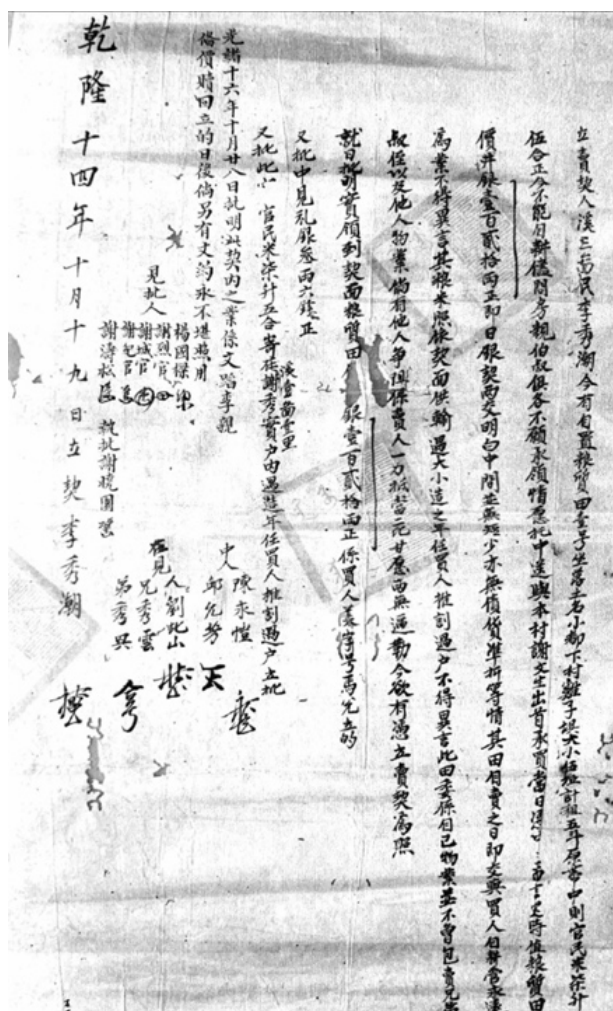 立賣契人溪三畐民李秀潮今有自置粮質田壹号坐落土名小鄉下村離子堤大小伍坵計租五斗原帶中則官民米柒升
伍合正今不能自耕儘問房親伯叔俱各不願承領情愿托中送與本村謝文士出首承買當日時值粮質田
價銀壹百貳拾兩正即日銀契兩交明白中間並無短少亦無債貨準折等情其田自賣之日即交與買人自耕管永遠
為業不得異言其粮米照依契面供輸遇大小造之年任買人推割過户不得異言此田委係自己物業並不曾包賣兄弟
叔侄以及他人物業倘有他人爭阻係賣人一力抵當二比甘愿两無逼勒今欲有憑立賣契為照
就日批明實領到契面粮質田銀壹百貳拾兩正係買人
又批中見礼銀叁両六錢正
又批此官民米柒升五合寄在謝秀實户内遇造年任買人推割過户立批
光緒十六年十月廿八日批明此契内之業係文階李親
俻價贖回立的日後倘另有文約永不堪照用
見批人 楊國樑
謝烈官
謝城官
謝定官
謝濤松
執批謝曉園
中人 陳永愷
邱允芳
在見人劉北山
兄秀雲
弟秀興
乾隆十四年十月十九日立契李秀潮